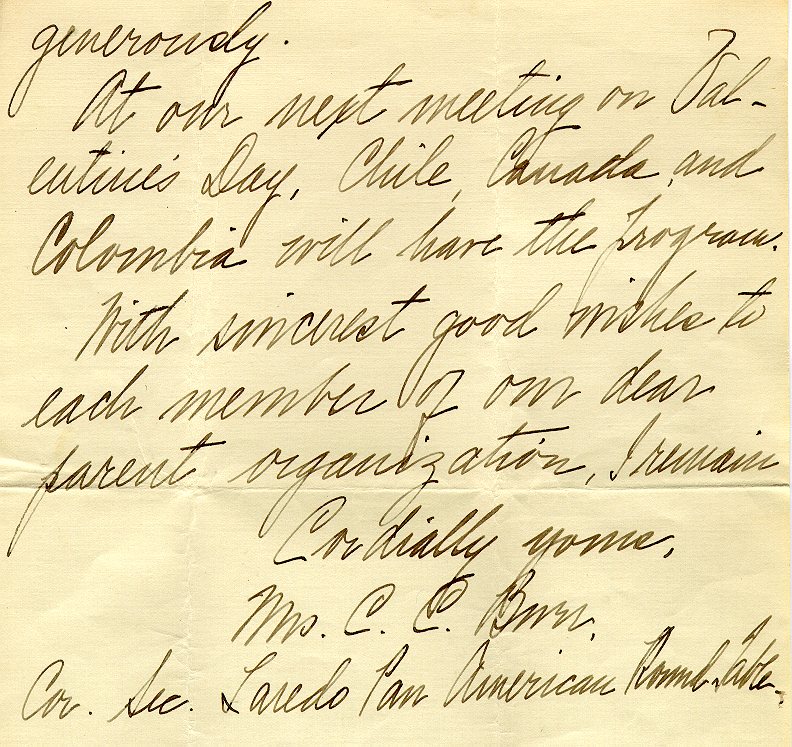 generously.
At our next meeting on Val-
entine's Day, Chile, Canada, and
Colombia will have the program.
With sincerest good wishes to
each member of our dear
parent organization, I remain
Cordially yours,
Mrs. C. C.
Cor. Sec. Laredo Pan American Round Table.